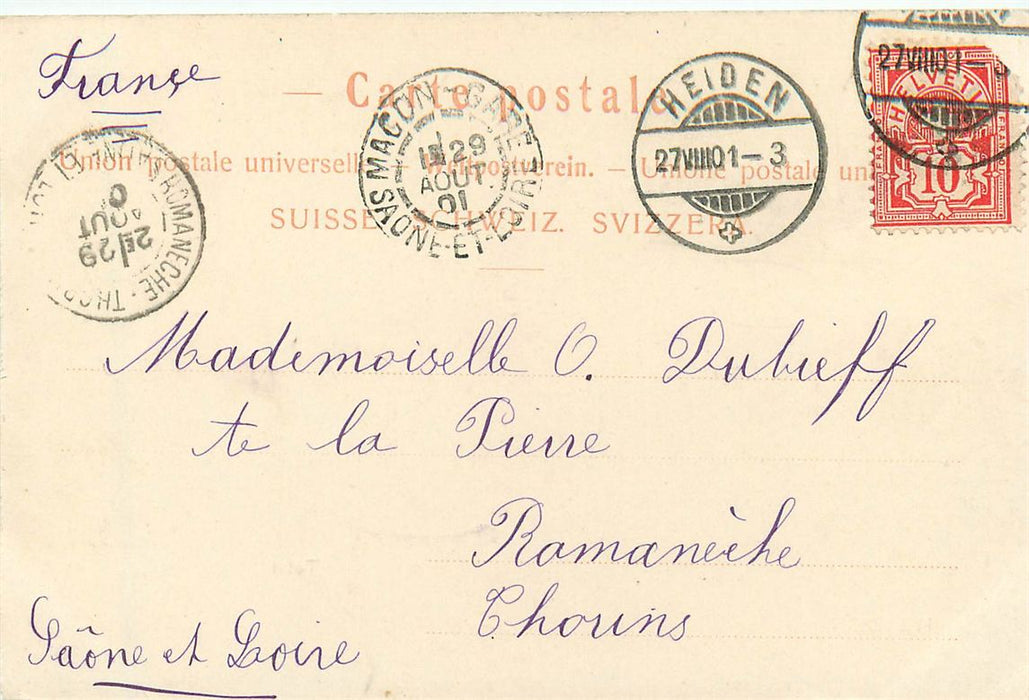 France
— Carte postale.
Union postale universelle. — Weltpostverein. — Unione postale un
SUISSE. SCHWEIZ. SVIZZERA.
MACON-GARE
1E 29
AOUT
01
SAONE-ET-LOIRE
HEIDEN
27 VIII 01 – 3
27 VIII 01 – 3
HELVETIA
FRANCO
10
ROMANECHE-THOR
2E 29
AOUT
0
Mademoiselle O. Dubieff
te la Pierre
Romanèche
Thorins
Saône et Loire